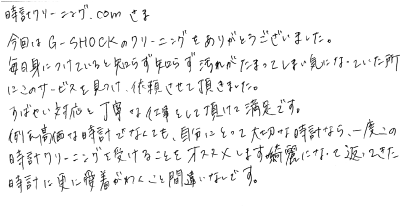 時計クリーニング.comさま
今回はG-SHOCKのクリーニングをありがとうございました。
毎日身につけていると知らず知らず汚れがたまってしまい気になっていた所
にこのサービスを見つけ、依頼させて頂きました。
すばやい対応と丁寧な仕事をして頂けて満足です。
例え高価な時計でなくても、自分にとって大切な時計なら、一度この
時計クリーニングを受けることをオススメします綺麗になって返ってきた
時計に更に愛着がわくこと間違いなしです。